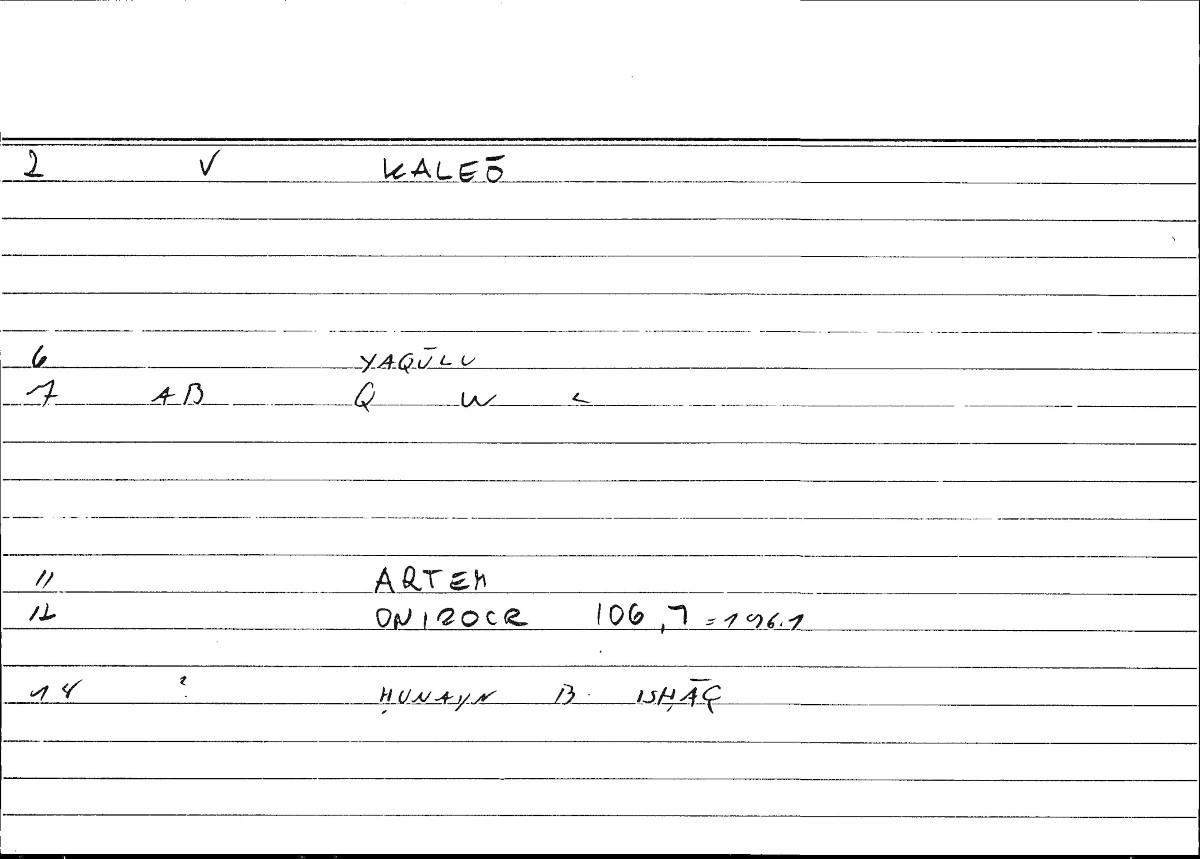 2 V KALEŌ
6 YAQŪLU
7 AB Q W L
11 ARTEM
12 ONIROCR 106,7 = 196.1
14 ? ḤUNAYN B. ISḤĀQ